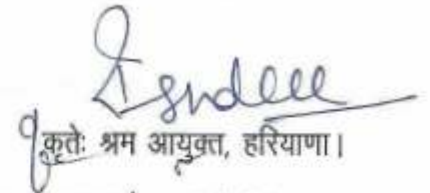 कृतेः श्रम आयुक्त, हरियाणा।